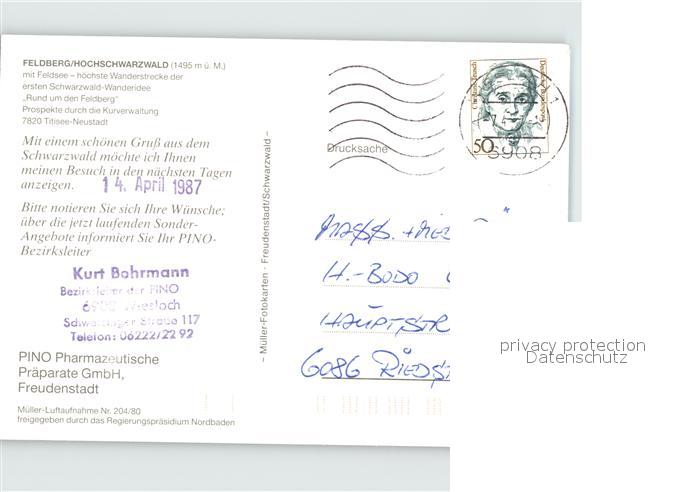 FELDBERG/HOCHSCHWARZWALD (1495 m ü. M.)
mit Feldsee – höchste Wanderstrecke der
ersten Schwarzwald-Wanderidee
„Rund um den Feldberg"
Prospekte durch die Kurverwaltung
7820 Titisee-Neustadt
Mit einem schönen Gruß aus dem
Schwarzwald möchte ich Ihnen
meinen Besuch in den nächsten Tagen
anzeigen. 14. April 1987
Bitte notieren Sie sich Ihre Wünsche;
über die jetzt laufenden Sonder-
Angebote informiert Sie Ihr PINO-
Bezirksleiter
Kurt Bohrmann
Bezirksleiter der PINO
6908 Wiesloch
Schwetzinger Straße 117
Telefon: 06222/2292
PINO Pharmazeutische
Präparate GmbH,
Freudenstadt
Müller-Luftaufnahme Nr. 204/80
freigegeben durch das Regierungspräsidium Nordbaden
– Müller-Fotokarten · Freudenstadt/Schwarzwald –
Drucksache
50
6908
H.-BODO
HAUPTSTR
6086 RIEDST
privacy protection
Datenschutz